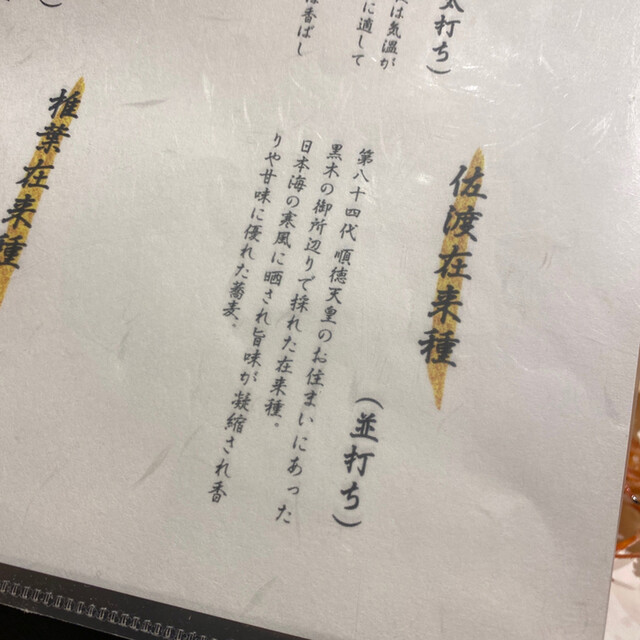 太打ち）
は気温が
に適して
は香ばし
佐渡在来種
（並打ち）
第八十四代 順徳天皇のお住まいにあった
黒木の御所辺りで採れた在来種。
日本海の寒風に晒され旨味が凝縮され香
りや甘味に優れた蕎麦。
椎葉在来種